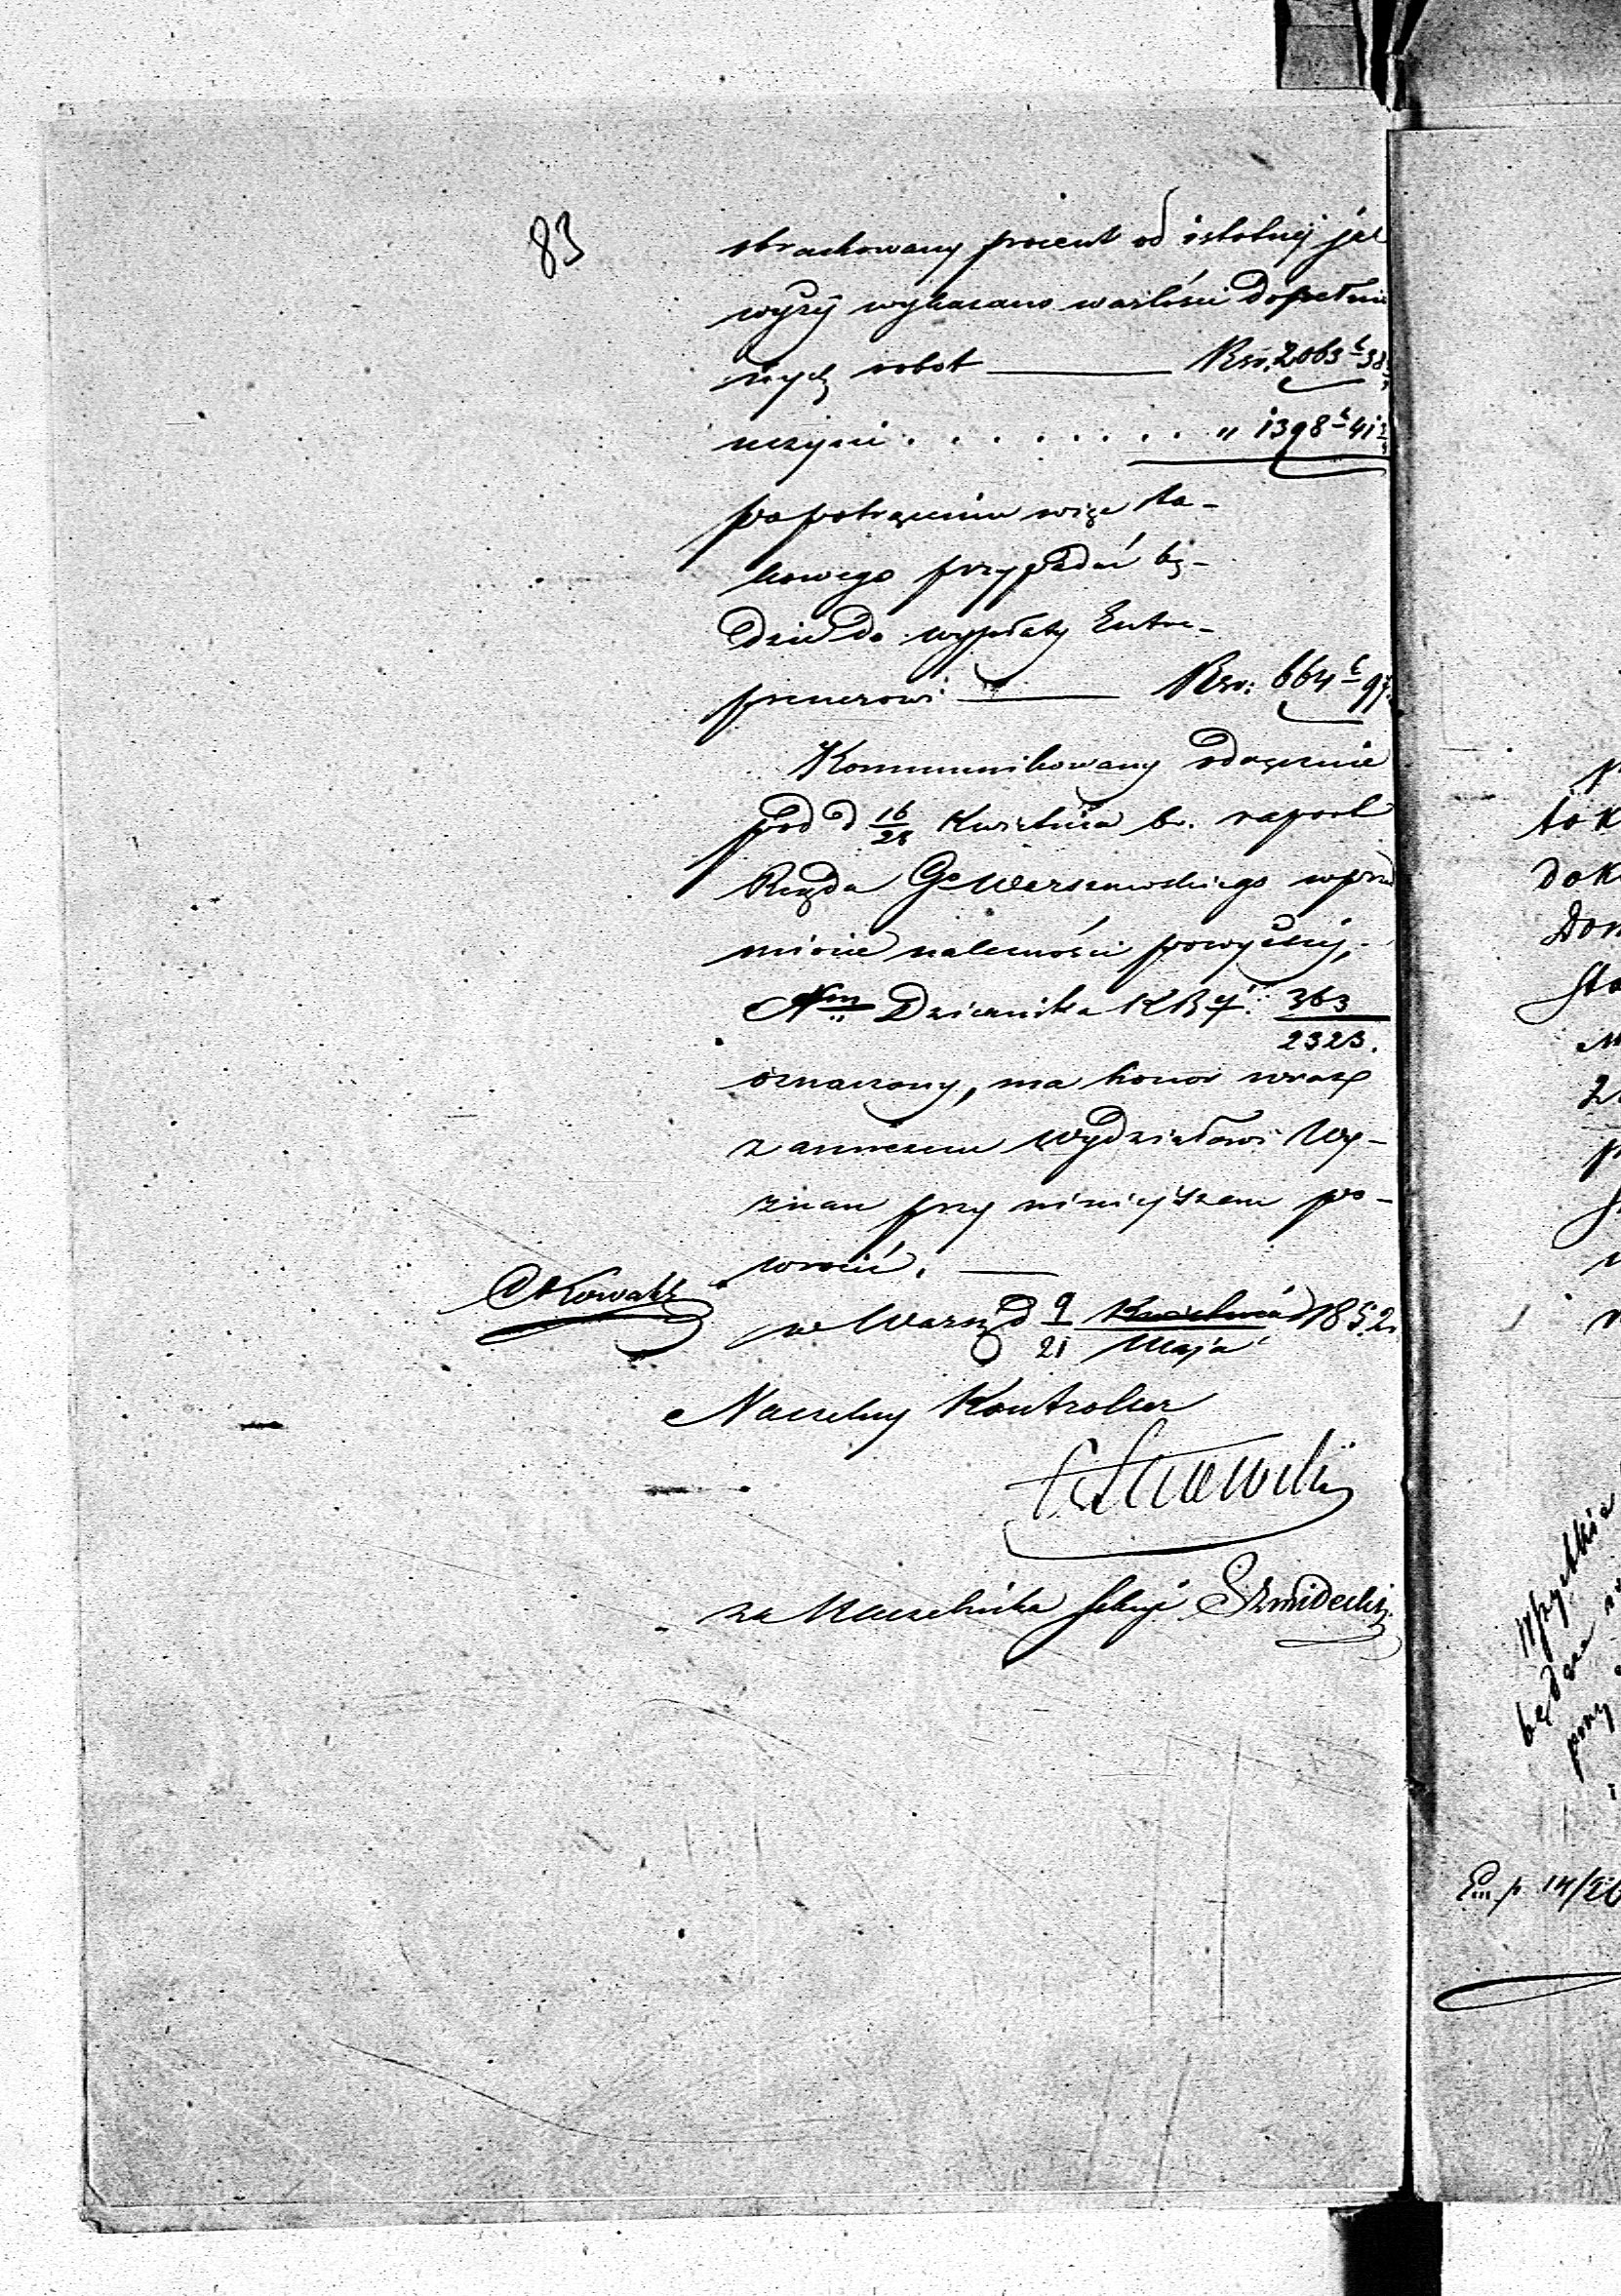 83
obrachowany procent od istotnéj jak
wyżéj wykazano wartości dopełnio
nych robot ——— Rsr. 2063 k 38
uczyni . . . . . . . . " 1398 k 41
po potrąceniu więc ta-
kowego przypadać bę-
dzie do wypłaty Entre-
prenerowi ——— Rsr: 664 k 97
Kommunikowany odręcznie
pod d 16/28 Kwietnia b.r. raport
Rządu Go Warszawskiego wprzed
miocie należności powyższéj,
Nrm Dziennika KB 363/2323.
oznaczony, ma honor wraz
z annexem Wydziałowi Wy-
znań przy niniejszem po-
wrócić. —
Kowalk
w Warsz d 9/21 Kwietnia/Maja 1852
Naczelny Kontroller
za Naczelnika Sekcji Szmidecki
tok
dok
Don
Sta
będące
przy
14/26